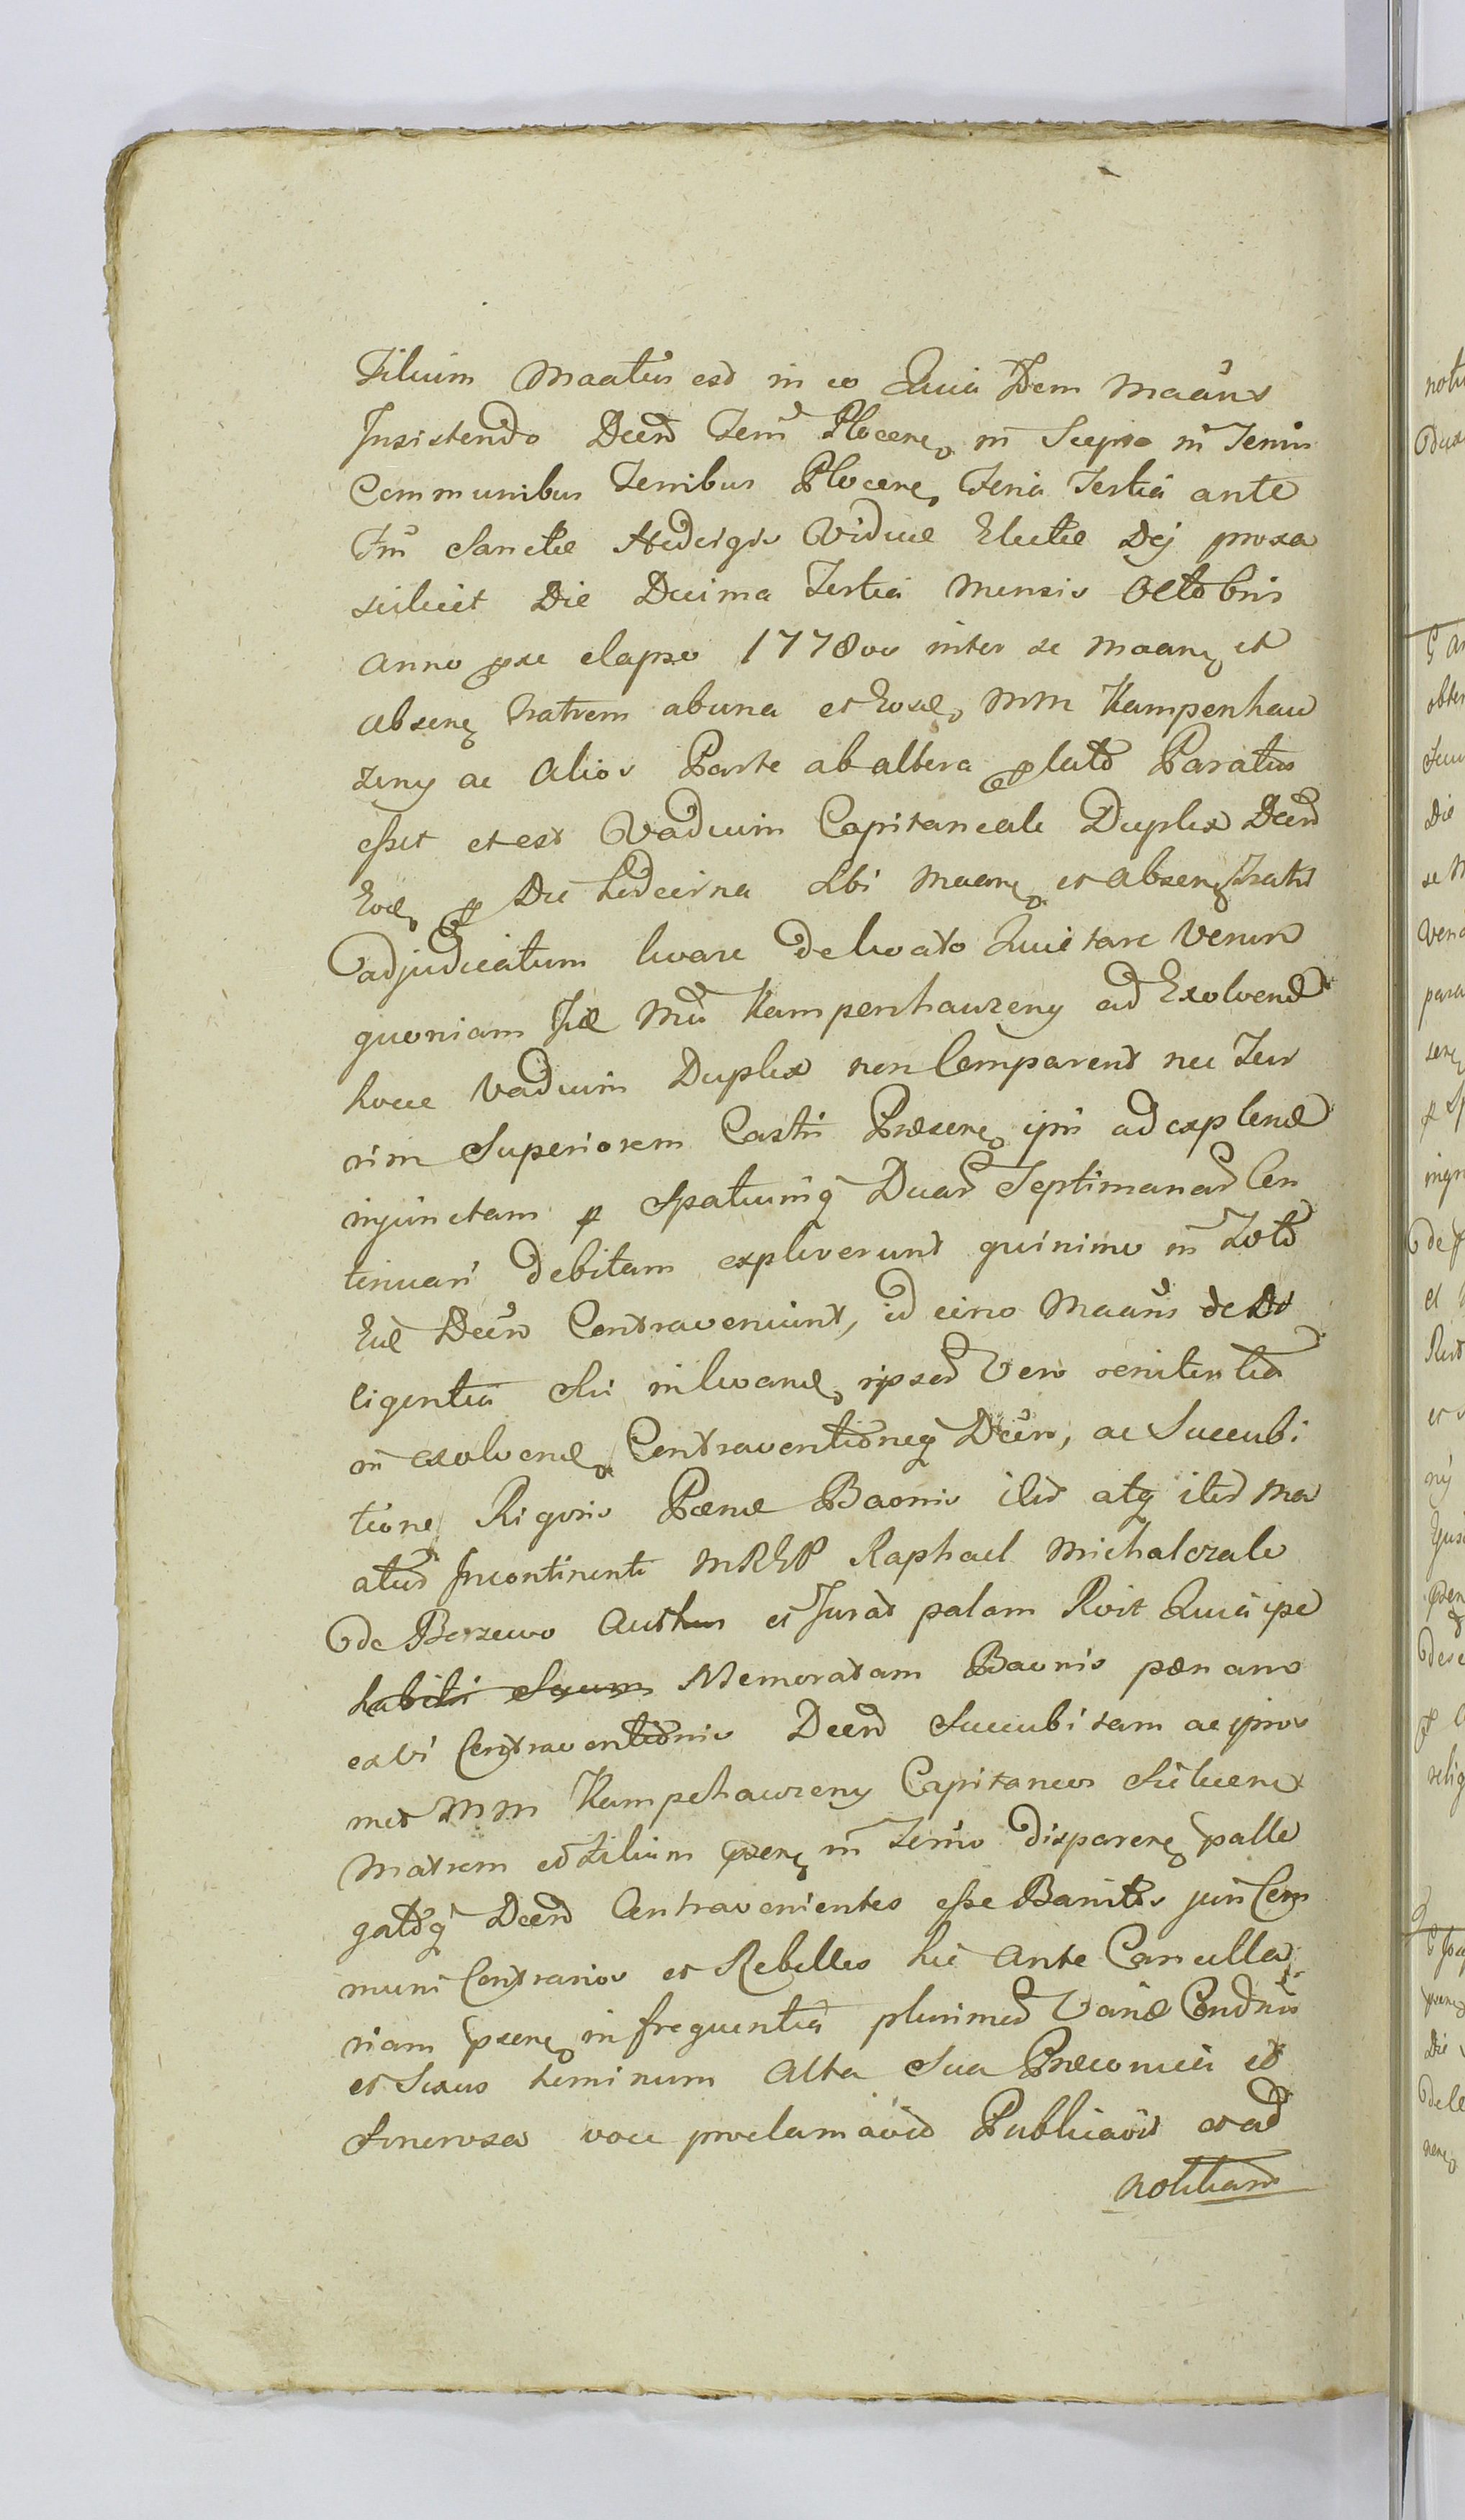 Filium Maatus est in eo Quia Idem Maans
Insistendo Decto Terri Plocens in Scepso in Terris
Communibus Terribus Plocens Feria Tertia ante
Ftm Sanctæ Hedvigis Viduæ Electæ Dej proxa
scilicet Die Decima Tertia Mensis Octobris
Anno pxe elapso 1778vo inter se Maans et
absens Fratrem ab una et MM Kampenhau
zeny ac Alios Parte ab altera lato Paratus
esset et est Vadium Capitaneale Duplex Decto
p Die hodierna Sbi Maans et absens Fratri
adjudicatum levare de levato Quietare Verum
quoniam Iidem MM Kampenhauzeny ad Exolvend
hocce Vadium Duplex non Comparent nec Tur
rim Superiorem Castri Præsens ipsi ad explend
injunctam p Spatiumq Duar Septimanar Con
tinuari debitam expleverunt quinimo in Toto
Decto Contraveniunt, id circo Maans de Di
ligentia Sui in levand, ipsor Vero renitentia
in exolvend, Contraventioneq Decti, ac Succubi
tione Rigoris Pœnæ Baonis ilid atq ilid Ma
atus Incontinenti MRGP Raphael Michalczale
de Berzewo Authen et Jurat palam Rvit Quia ipse
habiti Suum Memoratam Baonis pœnam
ex vi Contraventionis Decti Succubitam ac ipsos
met MM Kampehauzeny Capitaneos Silicens
Matrem et Filium psens in Termo disparens palle
gatoq Decto Contravenientes esse Banitos juri Com
muni Contrarios et Rebelles hic Ante Cancella
riam psens in frequentia plurimor Variæ Condnis
et Sexus hominum Alta Sua Præconica et
Sonorosa voce proclamavit Publicavit et ad
notitiam